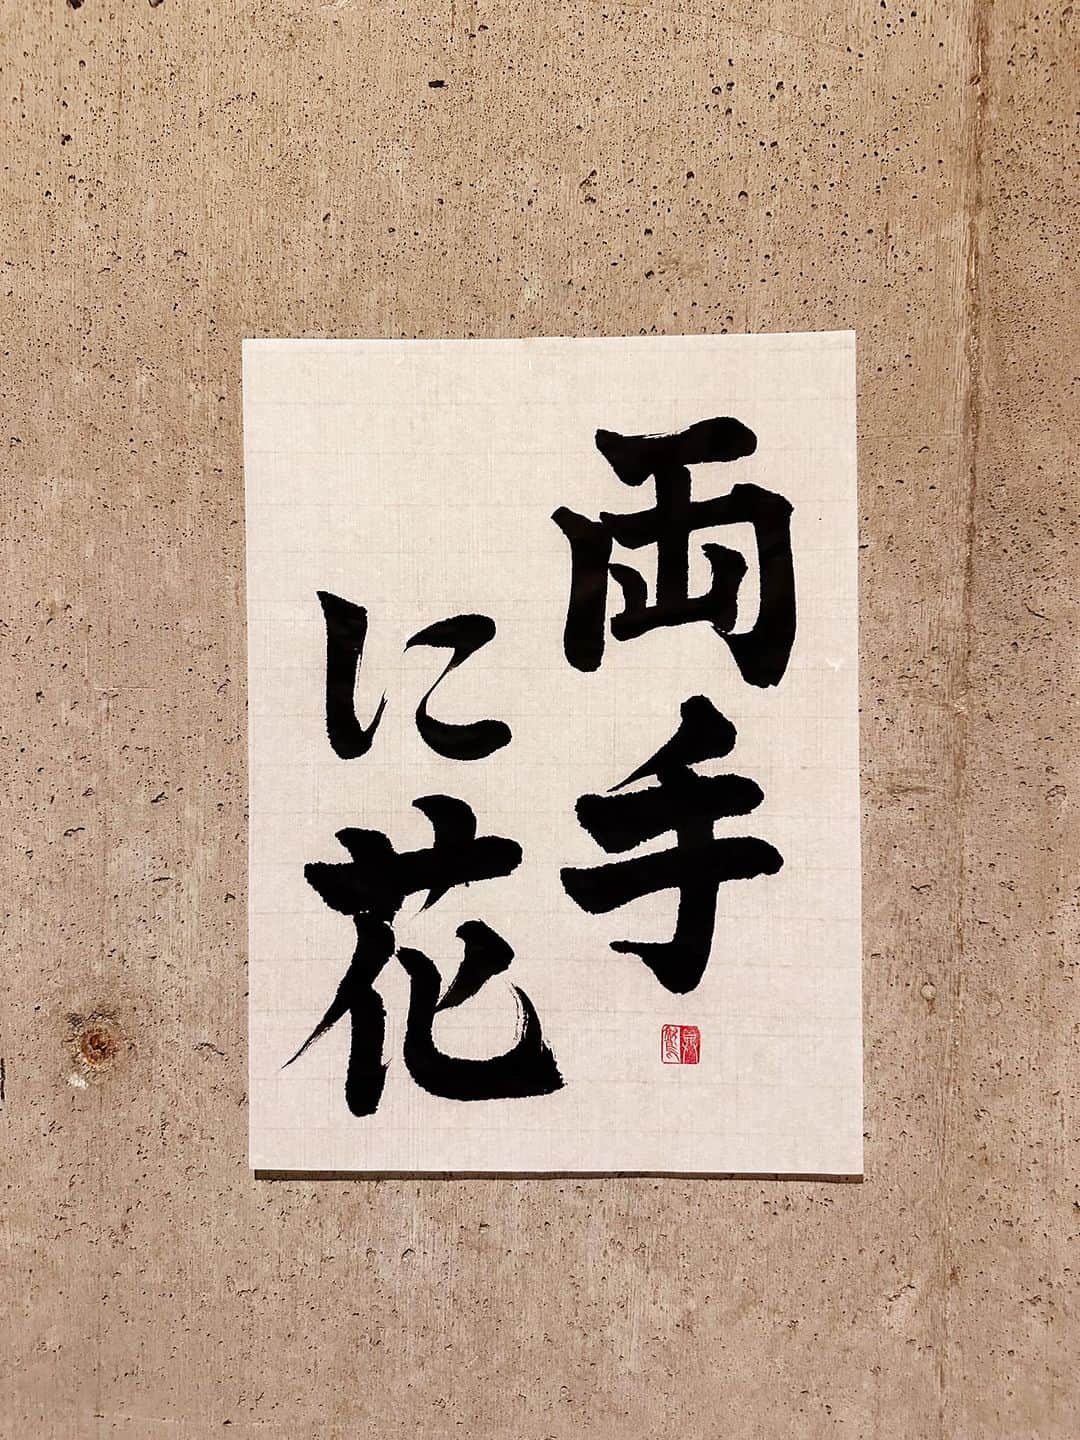 両手
に花